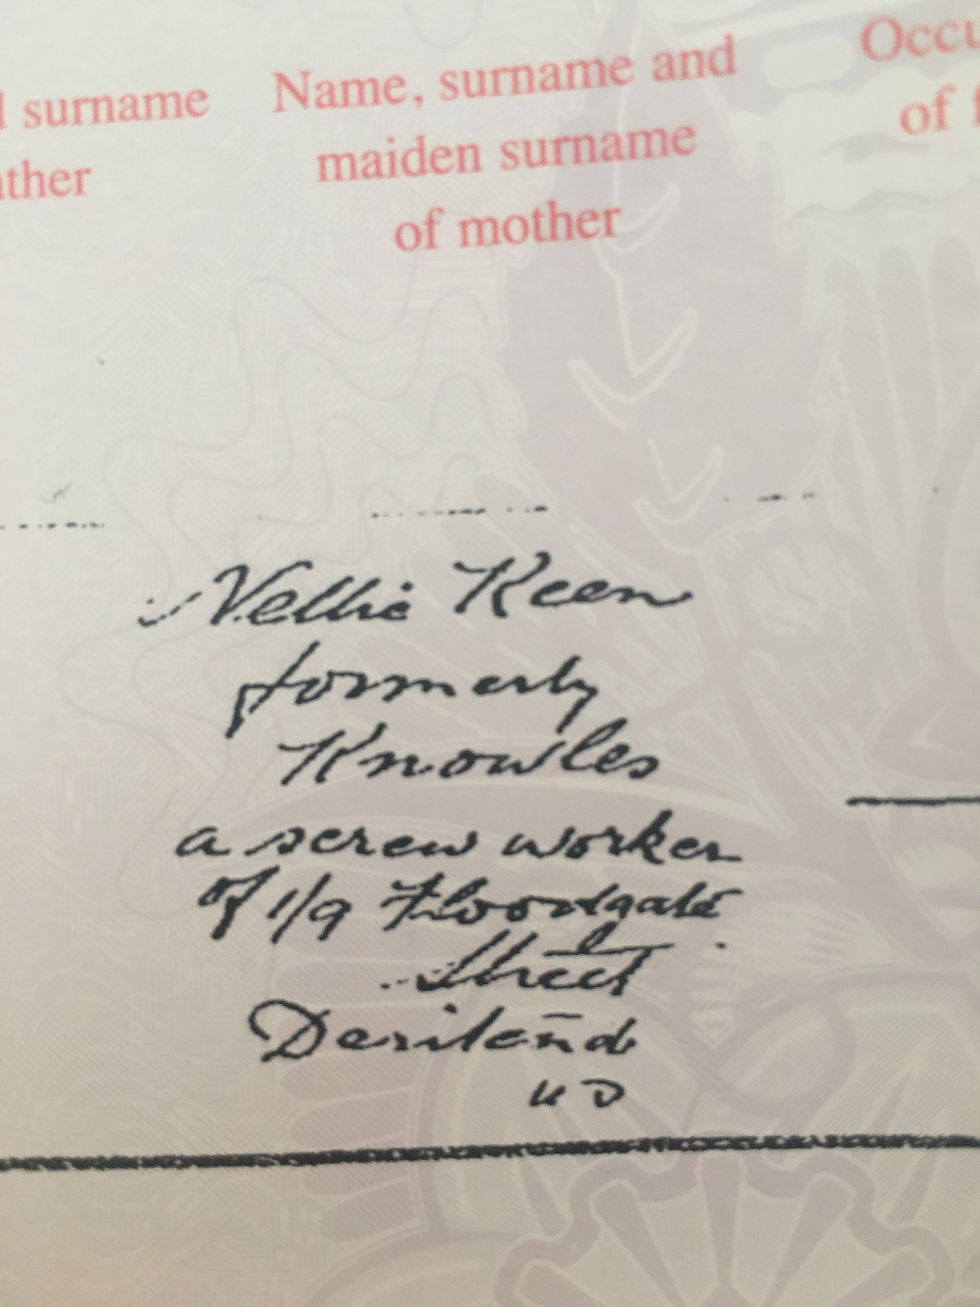 surname
Name, surname and
Occu
ther
maiden surname
of
of mother
Nellie Keen
formerly
Knowles
a screw worker
of 1/9 Floodgate
Street
Deritend
U D